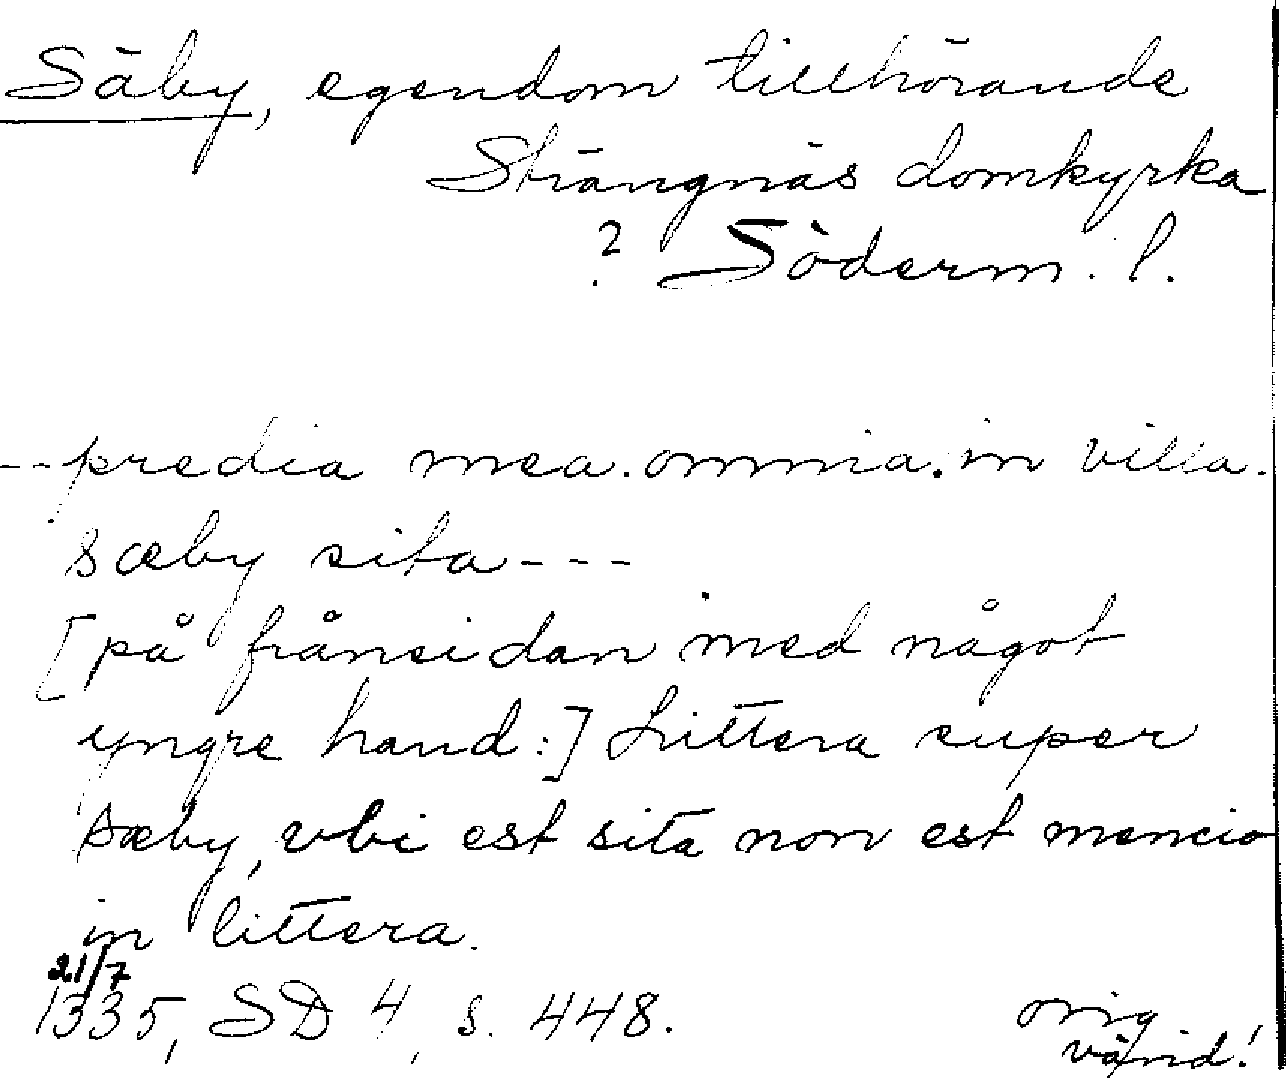 Säby, egendom tillhörande
Strängnäs domkyrka
? Söderm. l.
--predia mea. omnia. in villa.
sæby sita---
[på frånsidan med något
yngre hand:] Littera super
sæby, vbi est sita non est mencio
in littera.
21/7
1335, SD 4, s. 448.
orig
vänd!